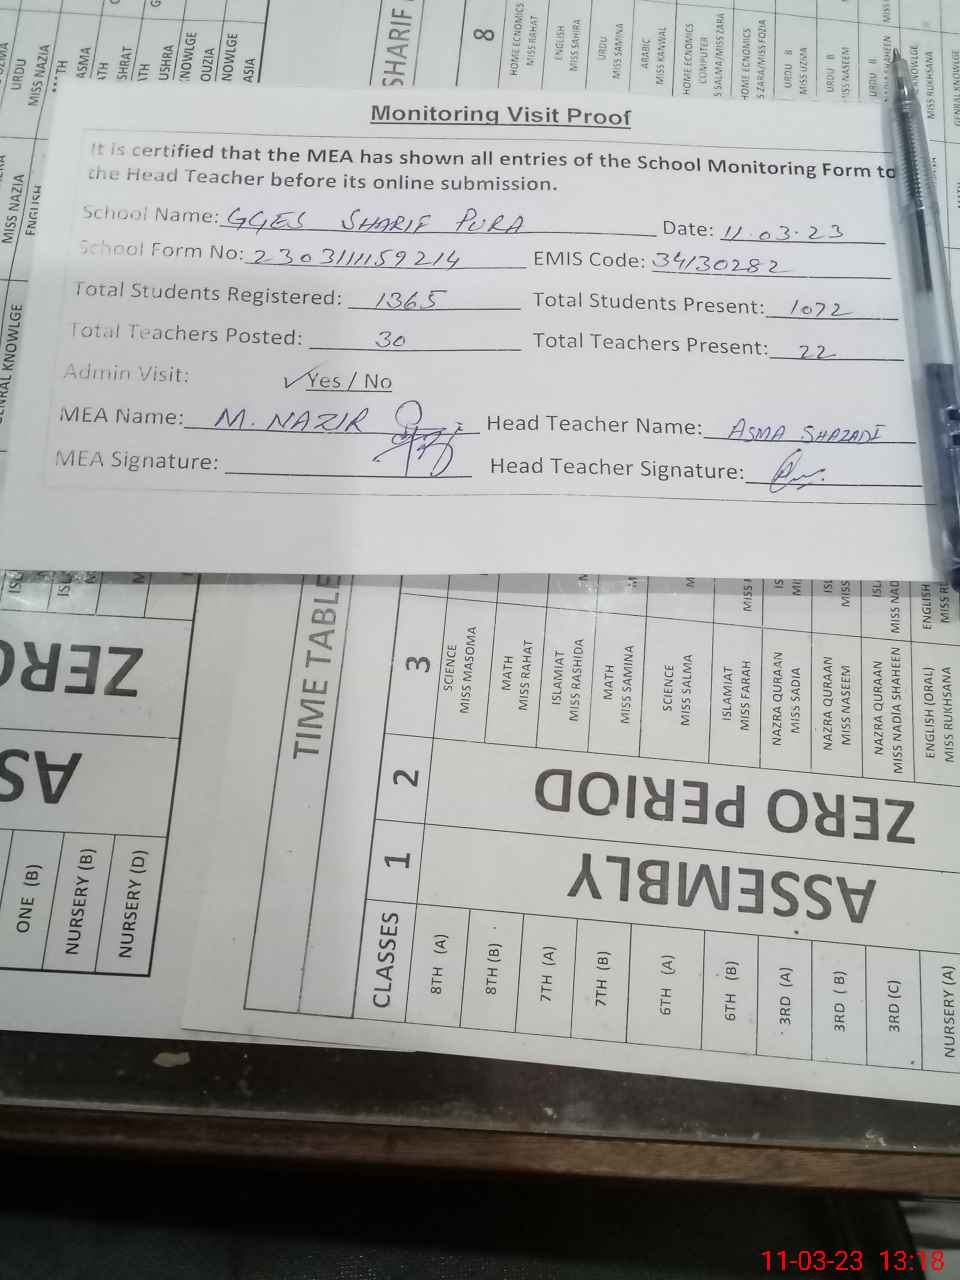 Monitoring Visit Proof
It is certified that the MEA has shown all entries of the School Monitoring Form to
the Head Teacher before its online submission.
School Name: GGES SHARIF PURA Date: 11.03.23
School Form No: 230311159214 EMIS Code: 34130282
Total Students Registered: 1365 Total Students Present: 1072
Total Teachers Posted: 30 Total Teachers Present: 22
Admin Visit: ✓Yes / No
MEA Name: M. NAZIR Head Teacher Name: ASMA SHAZADI
MEA Signature: Head Teacher Signature:
SHARIF
8
HOME ECNOMICS
MISS RAHAT
ENGLISH
MISS SAHIRA
URDU
MISS SAMINA
ARABIC
MISS KANWAL
HOME ECNOMICS
COMPUTER
S SALMA/MISS ZARA
HOME ECNOMICS
S ZARA/MISS FOZIA
URDU B
MISS UZMA
URDU B
MISS NASEEM
URDU B
KNOWLGE
MISS RUKHSANA
GENRAL KNOWLGE
URDU
MISS NAZIA
MISS NAZIA
ENGLISH
GENRAL KNOWLGE
ASMA
SHRAT
USHRA
OUZIA
NOWLGE
ASIA
TIME TABLE
CLASSES
1
2
3
ASSEMBLY
ZERO PERIOD
8TH (A)
SCIENCE
MISS MASOMA
8TH (B)
MATH
MISS RAHAT
7TH (A)
ISLAMIAT
MISS RASHIDA
7TH (B)
MATH
MISS SAMINA
6TH (A)
SCIENCE
MISS SALMA
6TH (B)
ISLAMIAT
MISS FARAH
3RD (A)
NAZRA QURAAN
MISS SADIA
3RD (B)
NAZRA QURAAN
MISS NASEEM
3RD (C)
NAZRA QURAAN
MISS NADIA SHAHEEN
NURSERY (A)
ENGLISH (ORAL)
MISS RUKHSANA
ZERO
AS
ONE (B)
NURSERY (B)
NURSERY (D)
11-03-23 13:18